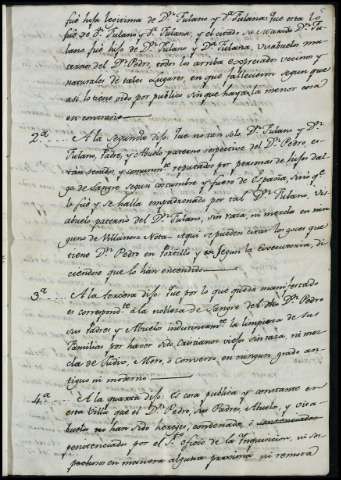 fué hija lexitima de Dn. Fulano y Da. Fulana: que esta lo
fué de Dn. Fulano y Da. Fulana, y el citado su marido Dn. Fu-
lano fué hijo de Dn. Fulano y Da. Fulana, Visabuelo ma-
terno del Dn. Pedro, todos los arriba expresados vecinos y
naturales de tales Lugares, en que fallecieron segun que
asi lo tiene oido por publico sin que haya la menor cosa
en contrario
2a. A la segunda dijo: que no tan solo Dn. Fulano y Dn.
Fulano, Padre, y Abuelo paterno respective del Dn. Pedro, es-
tan tenidos, y comunmte. reputados por personas de hijos dal-
go de Sangre segun costumbre y fuero de España, sino qe.
lo fué y se halla empadronado por tal Dn. Fulano, Vis-
abuelo paterno del Dn. Fulano, sin raza, ni mezcla en nin-
guno de Villanos. Nota. Aqui se pueden citar los que
tiene Dn. Pedro en y en seguir la Executoria, di-
ciendose que lo han entendido
3a. A la tercera dijo: que por lo que queda manifestado
es correspondte. a la nobleza de Sangre del dho Dn. Pedro
sus Padres y Abuelos la limpieza de sus
Familias por haver sido Cristianos viejos sin raza, ni mez-
cla de Judio, Moro, ó converso, en ningun grado an-
tiguo ni moderno
4a. A la quarta dijo: es cosa publica y constante en
esta Villa que el Dn. Pedro, sus Padres, Abuelos, y visa-
buelos no han sido herejes, condenados, ó
penitenciados por el Sto. oficio de la Inquisicion, ni sos-
pechosos en manera alguna proxima ni remota